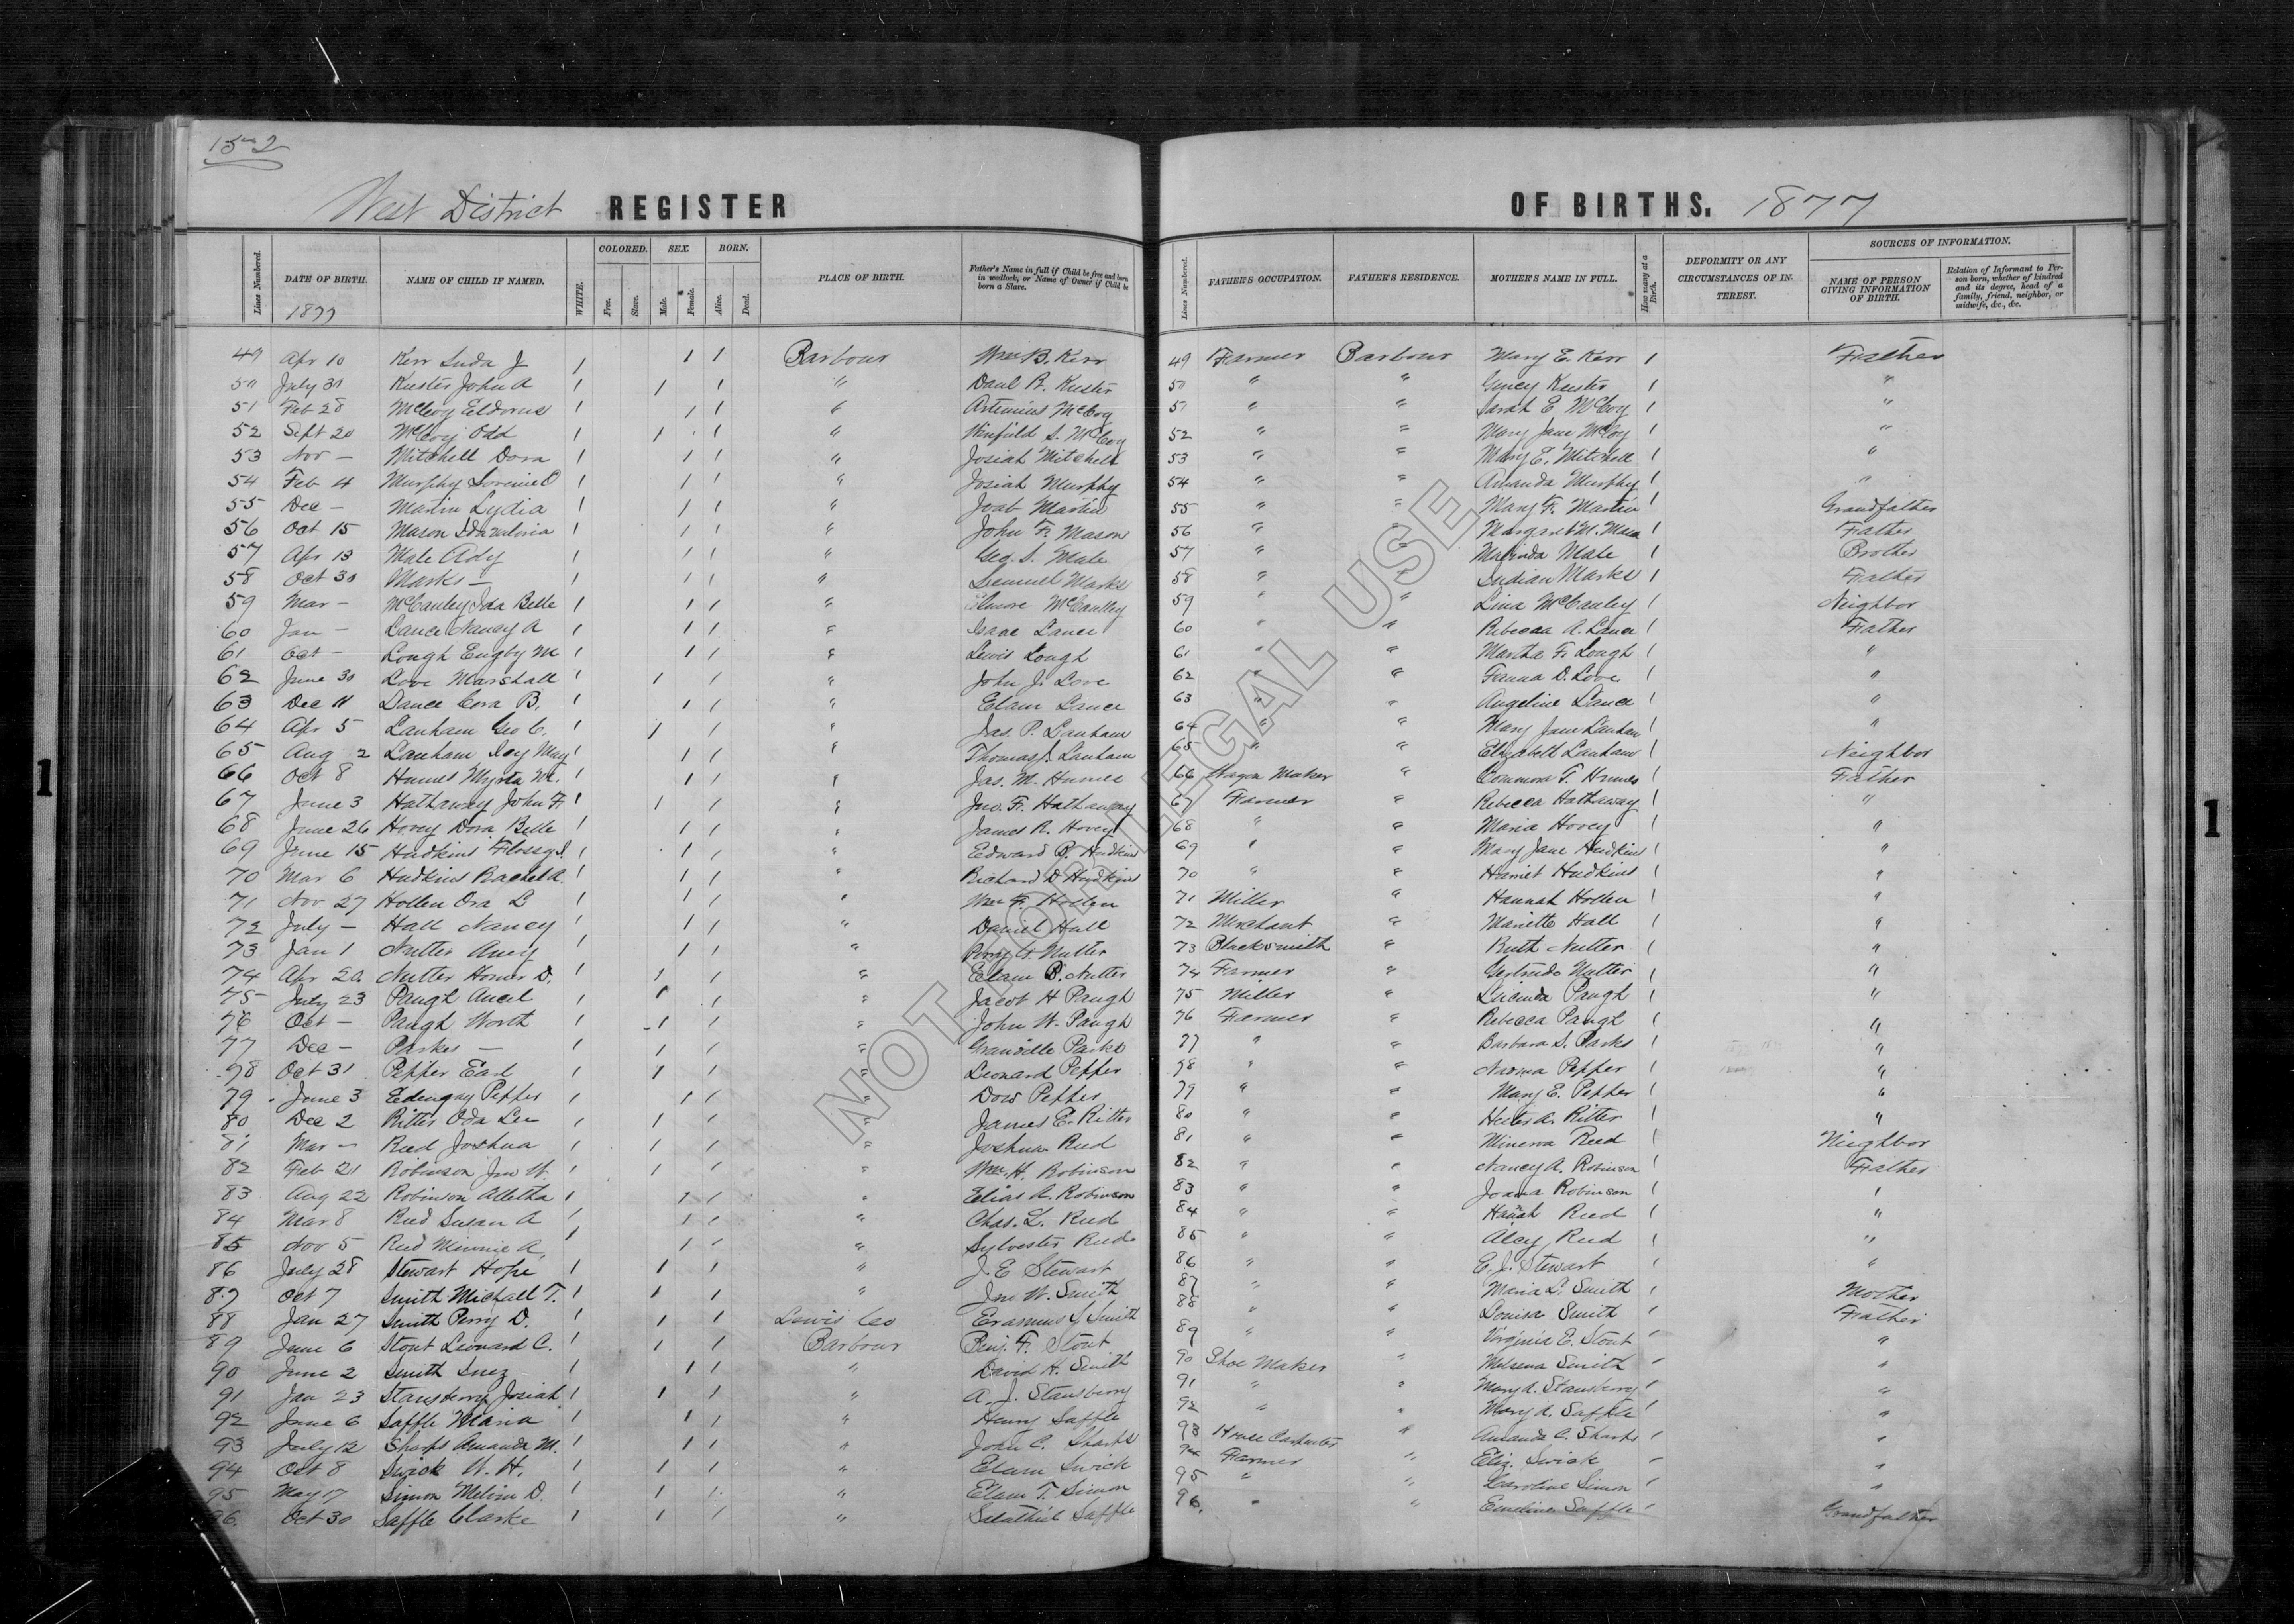 152
West District REGISTER OF BIRTHS. 1877
Lines Numbered. DATE OF BIRTH. 1877 NAME OF CHILD IF NAMED. WHITE. COLORED. Free. Slave. SEX. Male. Female. BORN. Alive. Dead. PLACE OF BIRTH. Father's Name in full if Child be free and born in wedlock, or Name of Owner if Child be born a Slave. Lines Numbered. FATHER'S OCCUPATION. FATHER'S RESIDENCE. MOTHER'S NAME IN FULL. How many at a Birth. DEFORMITY OR ANY CIRCUMSTANCES OF INTEREST. SOURCES OF INFORMATION. NAME OF PERSON GIVING INFORMATION OF BIRTH. Relation of Informant to Person born, whether of kindred and its degree, head of a family, friend, neighbor, or midwife, &c., &c.
49 Apr 10 Kerr Luda J 1 1 1 Barbour Wm B. Kerr 49 Farmer Barbour Mary E. Kerr 1 Father
50 July 30 Kuster John A 1 1 1 " Danl R. Kuster 50 " " Kuster 1 "
51 Feb 28 McCoy Eldorus 1 1 1 " Artemius McCoy 51 " " Sarah E. McCoy 1 "
52 Sept 20 McCoy Odd 1 1 1 " Winfield S. McCoy 52 " " Mary Jane McCoy 1 "
53 Nov — Mitchell Dora 1 1 1 " Josiah Mitchell 53 " " Mary E. Mitchell 1 "
54 Feb 4 Murphy 1 1 1 " Josiah Murphy 54 " " Amanda Murphy 1 "
55 Dec — Martin Lydia 1 1 1 " Joab Martin 55 " " Mary F. Martin 1 Grandfather
56 Oct 15 Mason 1 1 1 " John F. Mason 56 " " Margaret M. Mason 1 Father
57 Apr 13 Male Ady 1 1 1 " Geo. S. Male 57 " " Malinda Male 1 Brother
58 Oct 30 Marks — 1 1 1 " Lemuel Marks 58 " " Indian Marks 1 Father
59 Mar — McCauley Ida Belle 1 1 1 " Elmore McCaulley 59 " " Lina McCauley 1 Neighbor
60 Jan — Lance Nancy A 1 1 1 " Isaac Lance 60 " " Rebecca A. Lance 1 Father
61 Oct — Lough M 1 1 1 " Lewis Lough 61 " " Martha F. Lough 1 "
62 June 30 Love Marshall 1 1 1 " John J. Love 62 " " D. Love 1 "
63 Dec 11 Lance Cora B. 1 1 1 " Elam Lance 63 " " Angeline Lance 1 "
64 Apr 5 Lanham Geo C. 1 1 1 " Jas. P. Lanham 64 " " Mary Jane Lanham 1 "
65 Aug 2 Lanham Icy May 1 1 1 " Thomas J. Lanham 65 " " Elizabeth Lanham 1 Neighbor
66 Oct 8 Humes Myrta M. 1 1 1 " Jas. M. Humes 66 Wagon Maker " Commora T. Humes 1 Father
67 June 3 Hathaway John F. 1 1 1 " Jno. F. Hathaway 67 Farmer " Rebecca Hathaway 1 "
68 June 26 Hovey Dora Belle 1 1 1 " James R. Hovey 68 " " Maria Hovey 1 "
69 June 15 Hudkins Flossy J. 1 1 1 " Edward B. Hudkins 69 " " Mary Jane Hudkins 1 "
70 Mar 6 Hudkins Rachel A. 1 1 1 " Richard D Hudkins 70 " " Harriet Hudkins 1 "
71 Nov 27 Hollen Ora L 1 1 1 " Wm F. Hollen 71 Miller " Hannah Hollen 1 "
72 July — Hall Nancy 1 1 1 " Daniel Hall 72 Merchant " Mariette Hall 1 "
73 Jan 1 Nutter Amy 1 1 1 " Perry G. Nutter 73 Blacksmith " Ruth Nutter 1 "
74 Apr 20 Nutter Homer D. 1 1 1 " Elam B. Nutter 74 Farmer " Gertrude Nutter 1 "
75 July 23 Paugh Ancel 1 1 1 " Jacob H Paugh 75 Miller " Lucinda Paugh 1 "
76 Oct — Paugh Worth 1 1 1 " John W. Paugh 76 Farmer " Rebecca Paugh 1 "
77 Dec — Parkes — 1 1 1 " Granville Parks 77 " " Barbara S. Parks 1 "
78 Oct 31 Pepper Earl 1 1 1 " Leonard Pepper 78 " " Naoma Pepper 1 "
79 June 3 Edengay Pepper 1 1 1 " Dow Pepper 79 " " Mary E. Pepper 1 "
80 Dec 2 Ritter Oda Lee 1 1 1 " James E. Ritter 80 " " Hester A. Ritter 1 "
81 Mar — Reed Joshua 1 1 1 " Joshua Reed 81 " " Minerva Reed 1 Neighbor
82 Feb 21 Robinson Jno W. 1 1 1 " Wm. H. Robinson 82 " " Nancy A. Robinson 1 Father
83 Aug 22 Robinson Alletha 1 1 1 " Elias A. Robinson 83 " " Joana Robinson 1 "
84 Mar 8 Reed Susan A 1 1 1 " Chas. L. Reed 84 " " Hanah Reed 1 "
85 Nov 5 Reed Minnie A. 1 1 1 " Sylvester Reed 85 " " Alcy Reed 1 "
86 July 28 Stewart Hope 1 1 1 " J. E Stewart 86 " " E. J. Stewart 1 "
87 Oct 7 Smith Michall T. 1 1 1 " Jno W. Smith 87 " " Maria L. Smith 1 Mother
88 Jan 27 Smith Perry D. 1 1 1 Lewis Co Erasmus J Smith 88 " " Louisa Smith 1 Father
89 June 6 Stout Leonard C. 1 1 1 Barbour Benj. F. Stout 89 " " Virginia E. Stout 1 "
90 June 2 Smith Inez 1 1 1 " David H. Smith 90 Shoe Maker " Melsena Smith 1 "
91 Jan 23 Stansberry Josiah 1 1 1 " A. J. Stansberry 91 " " Mary A. Stansberry 1 "
92 June 6 Saffle Maria 1 1 1 " Henry Saffle 92 " " Mary A. Saffle 1 "
93 July 12 Sharps Amanda M. 1 1 1 " John C. Sharps 93 House Carpenter " Amanda C. Sharps 1 "
94 Oct 8 Swick W. H. 1 1 1 " Elam Swick 94 Farmer " Eliz. Swick 1 "
95 May 17 Simon Melvin D. 1 1 1 " Elam T. Simon 95 " " Caroline Simon 1 "
96 Oct 30 Saffle Clarke 1 1 1 " Salathiel Saffle 96 " " Emeline Saffle 1 Grandfather
1 1
NOT FOR LEGAL USE